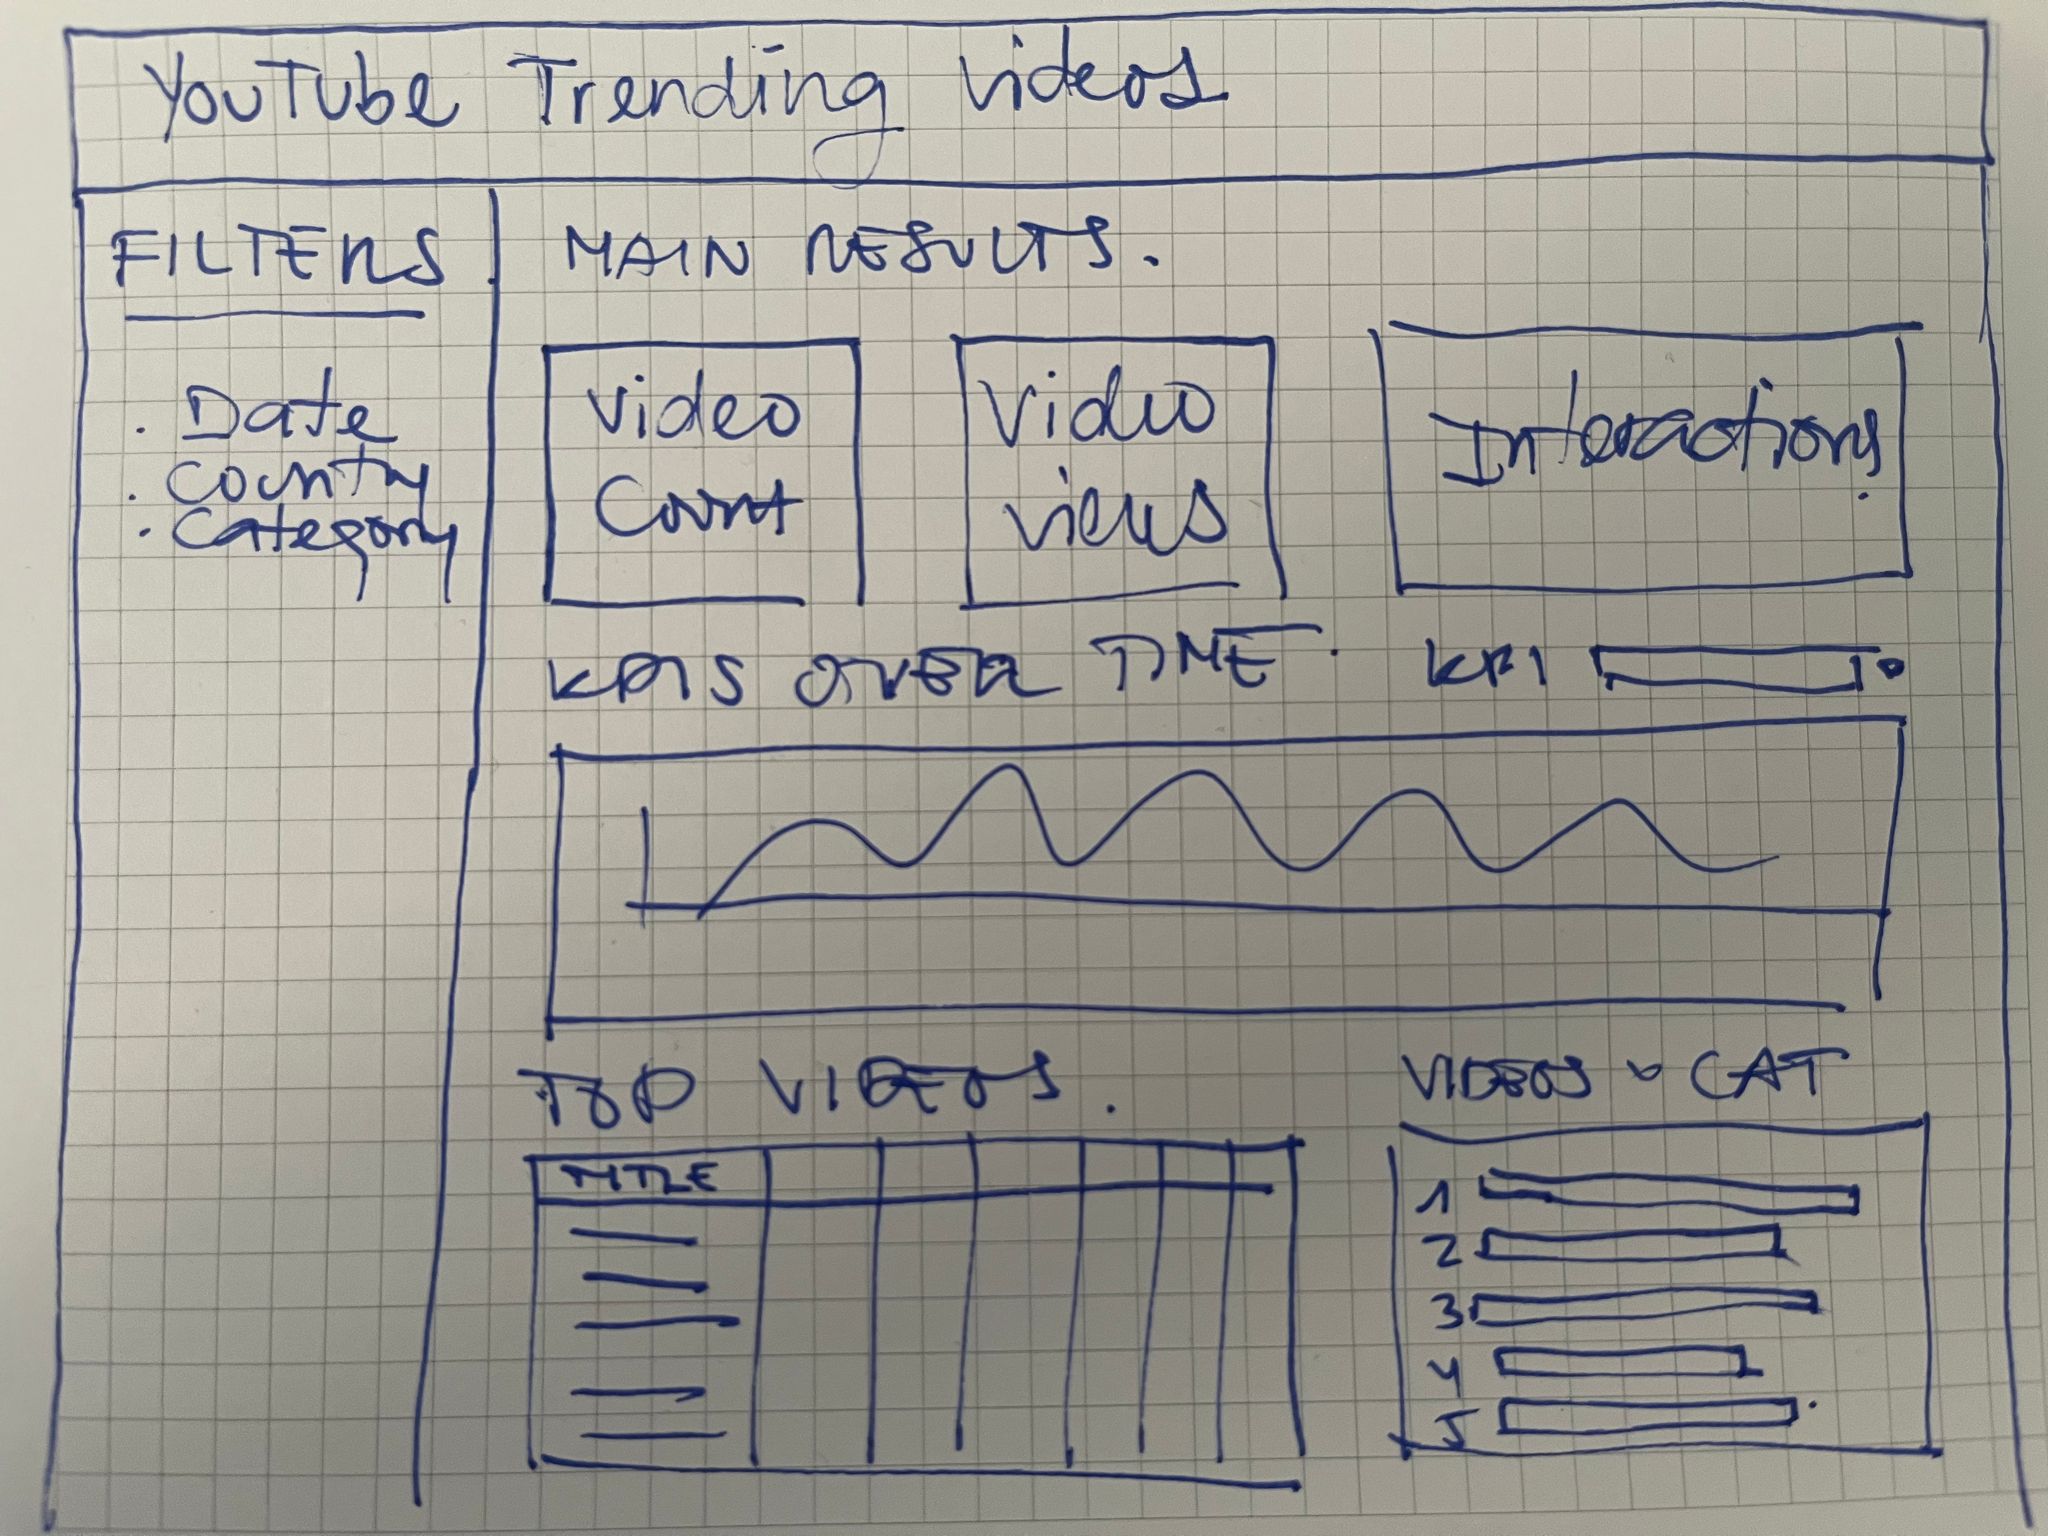 YouTube Trending Videos
FILTERS
. Date
. Country
. Category
MAIN RESULTS.
Video
Count
Video
Views
Interactions
KPIS OVER TIME.
KPI
TOP VIDEOS.
TITLE
VIDEOS CAT
1
2
3
4
5